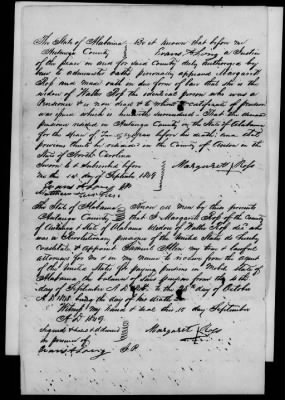 The State of Alabama Be it known that before me
Autauga County Evans A Long a Justice
of the peace in and for said County duly authorized by
law to administer oaths personaly appeared Margaret
Ross and made oath in due form of law that she is the
widow of Walter Ross the identical person who was a
Pensioner & is now dead & to whom a certificate of pension
was given which is herewith surrendered That the deceased
pensioner resided in Autauga County in the State of Alabama
for the space of years before his death and that
previous thereto he resided in the County of in the
State of North Carolina
Sworn to & subscribed before Margaret Ross
me the 15 day of September 1849
Evans A Long JP
The State of Alabama Know all men by these presents
Autauga County that I Margaret Ross of the County
of Autauga and State of Alabama Widow of Walter Ross who
was a Revolutionary pensioner of the United States do hereby
constitute & appoint Samuel Allen my true & lawful
attorney for me & in my name to receive from the agent
of the United States for paying pensions in Mobile State of
Alabama the balance of said pension from the 4th
day of September A.D. 1848 to the 28th day of October
A.D. 1848 being the day of his death
Witness my hand & seal this 15 day September
A.D. 1849
Signed & sealed Margaret Ross
in presence of
Evans A Long J.P.